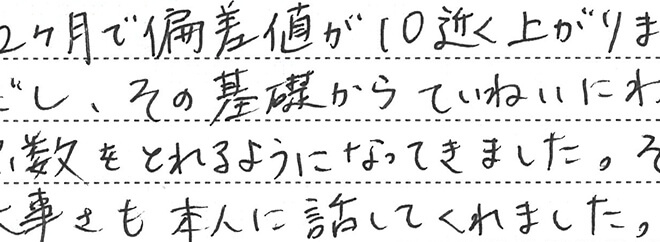 2ヶ月で偏差値が10近く上がりま
し、その基礎からていねいにわ
数をとれるようになってきました。そ
事さも本人に話してくれました。